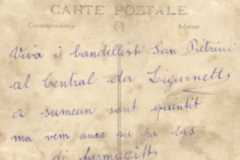 CARTE POSTALE
Correspondance Adresse
Viva i bandellist San Pietrini
al Central da Ligurnett
a sumean sont quintit
ma vem anca su par las
di